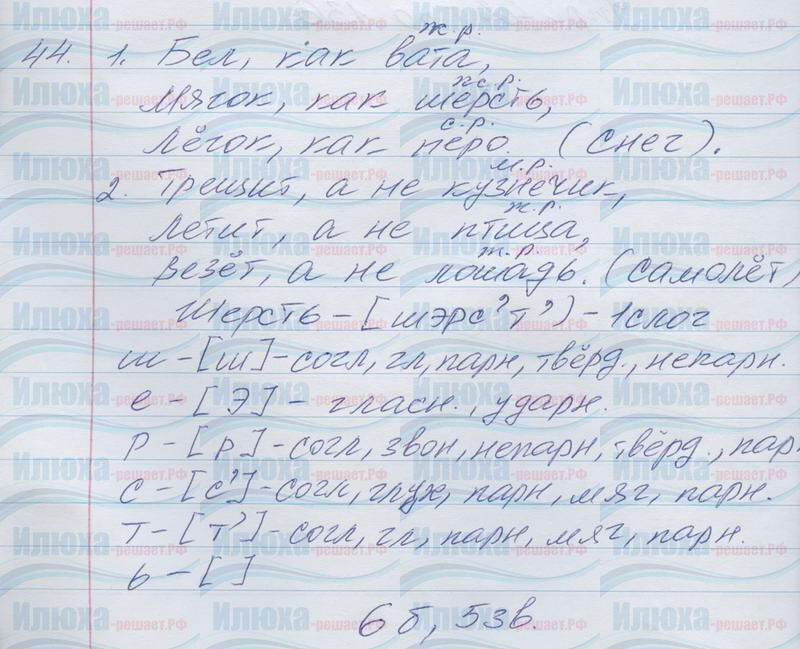 44. 1. Бел, как вата, ж.р.
мягок, как шерсть, ж.р.
лёгок, как перо. с.р. (снег).
2. Трещит, а не кузнечик, м.р.
летит, а не птица, ж.р.
везёт, а не лошадь. ж.р. (самолёт)
Шерсть – [шэрс'т'] – 1 слог
ш – [ш] – согл, гл, парн, твёрд., непарн.
е – [э] – гласн., ударн.
р – [р] – согл, звон, непарн, твёрд., пар
с – [с'] – согл, глух, парн, мяг, парн.
т – [т'] – согл, гл, парн, мяг, парн.
ь – [ ]
6 б, 5 зв.
Илюха-решает.РФ